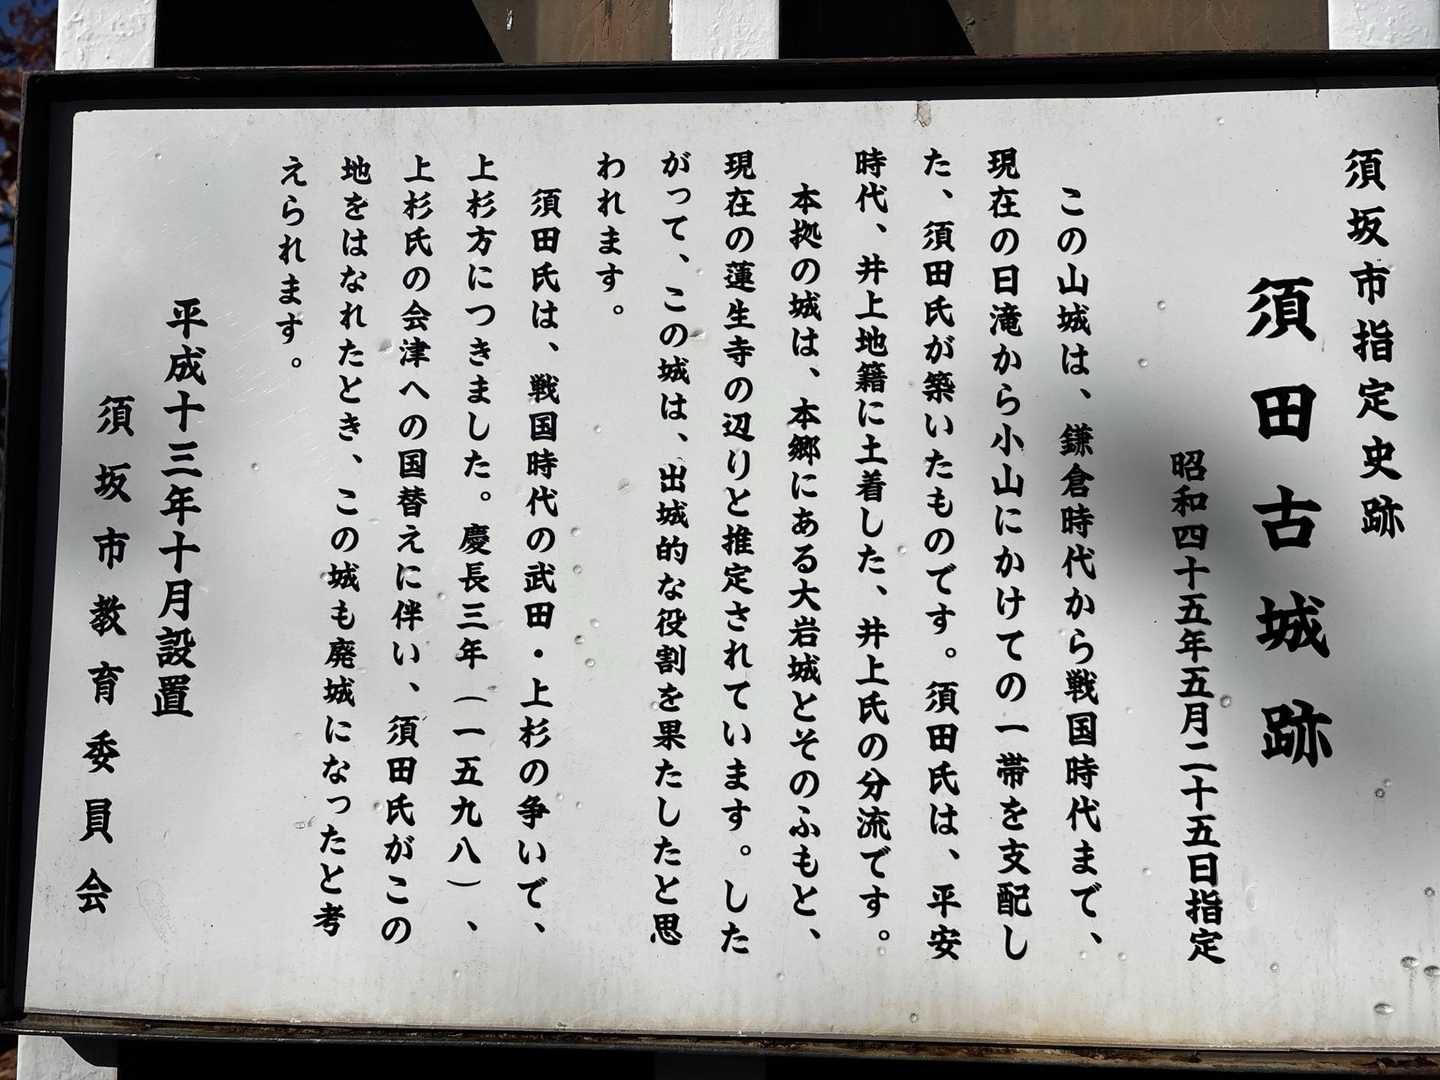 須坂市指定史跡
須田古城跡
昭和四十五年五月二十五日指定
この山城は、鎌倉時代から戦国時代まで、
現在の日滝から小山にかけての一帯を支配し
た、須田氏が築いたものです。須田氏は、平安
時代、井上地籍に土着した、井上氏の分流です。
本拠の城は、本郷にある大岩城とそのふもと、
現在の蓮生寺の辺りと推定されています。した
がって、この城は、出城的な役割を果たしたと思
われます。
須田氏は、戦国時代の武田・上杉の争いで、
上杉方につきました。慶長三年(一五九八)、
上杉氏の会津への国替えに伴い、須田氏がこの
地をはなれたとき、この城も廃城になったと考
えられます。
平成十三年十月設置
須坂市教育委員会